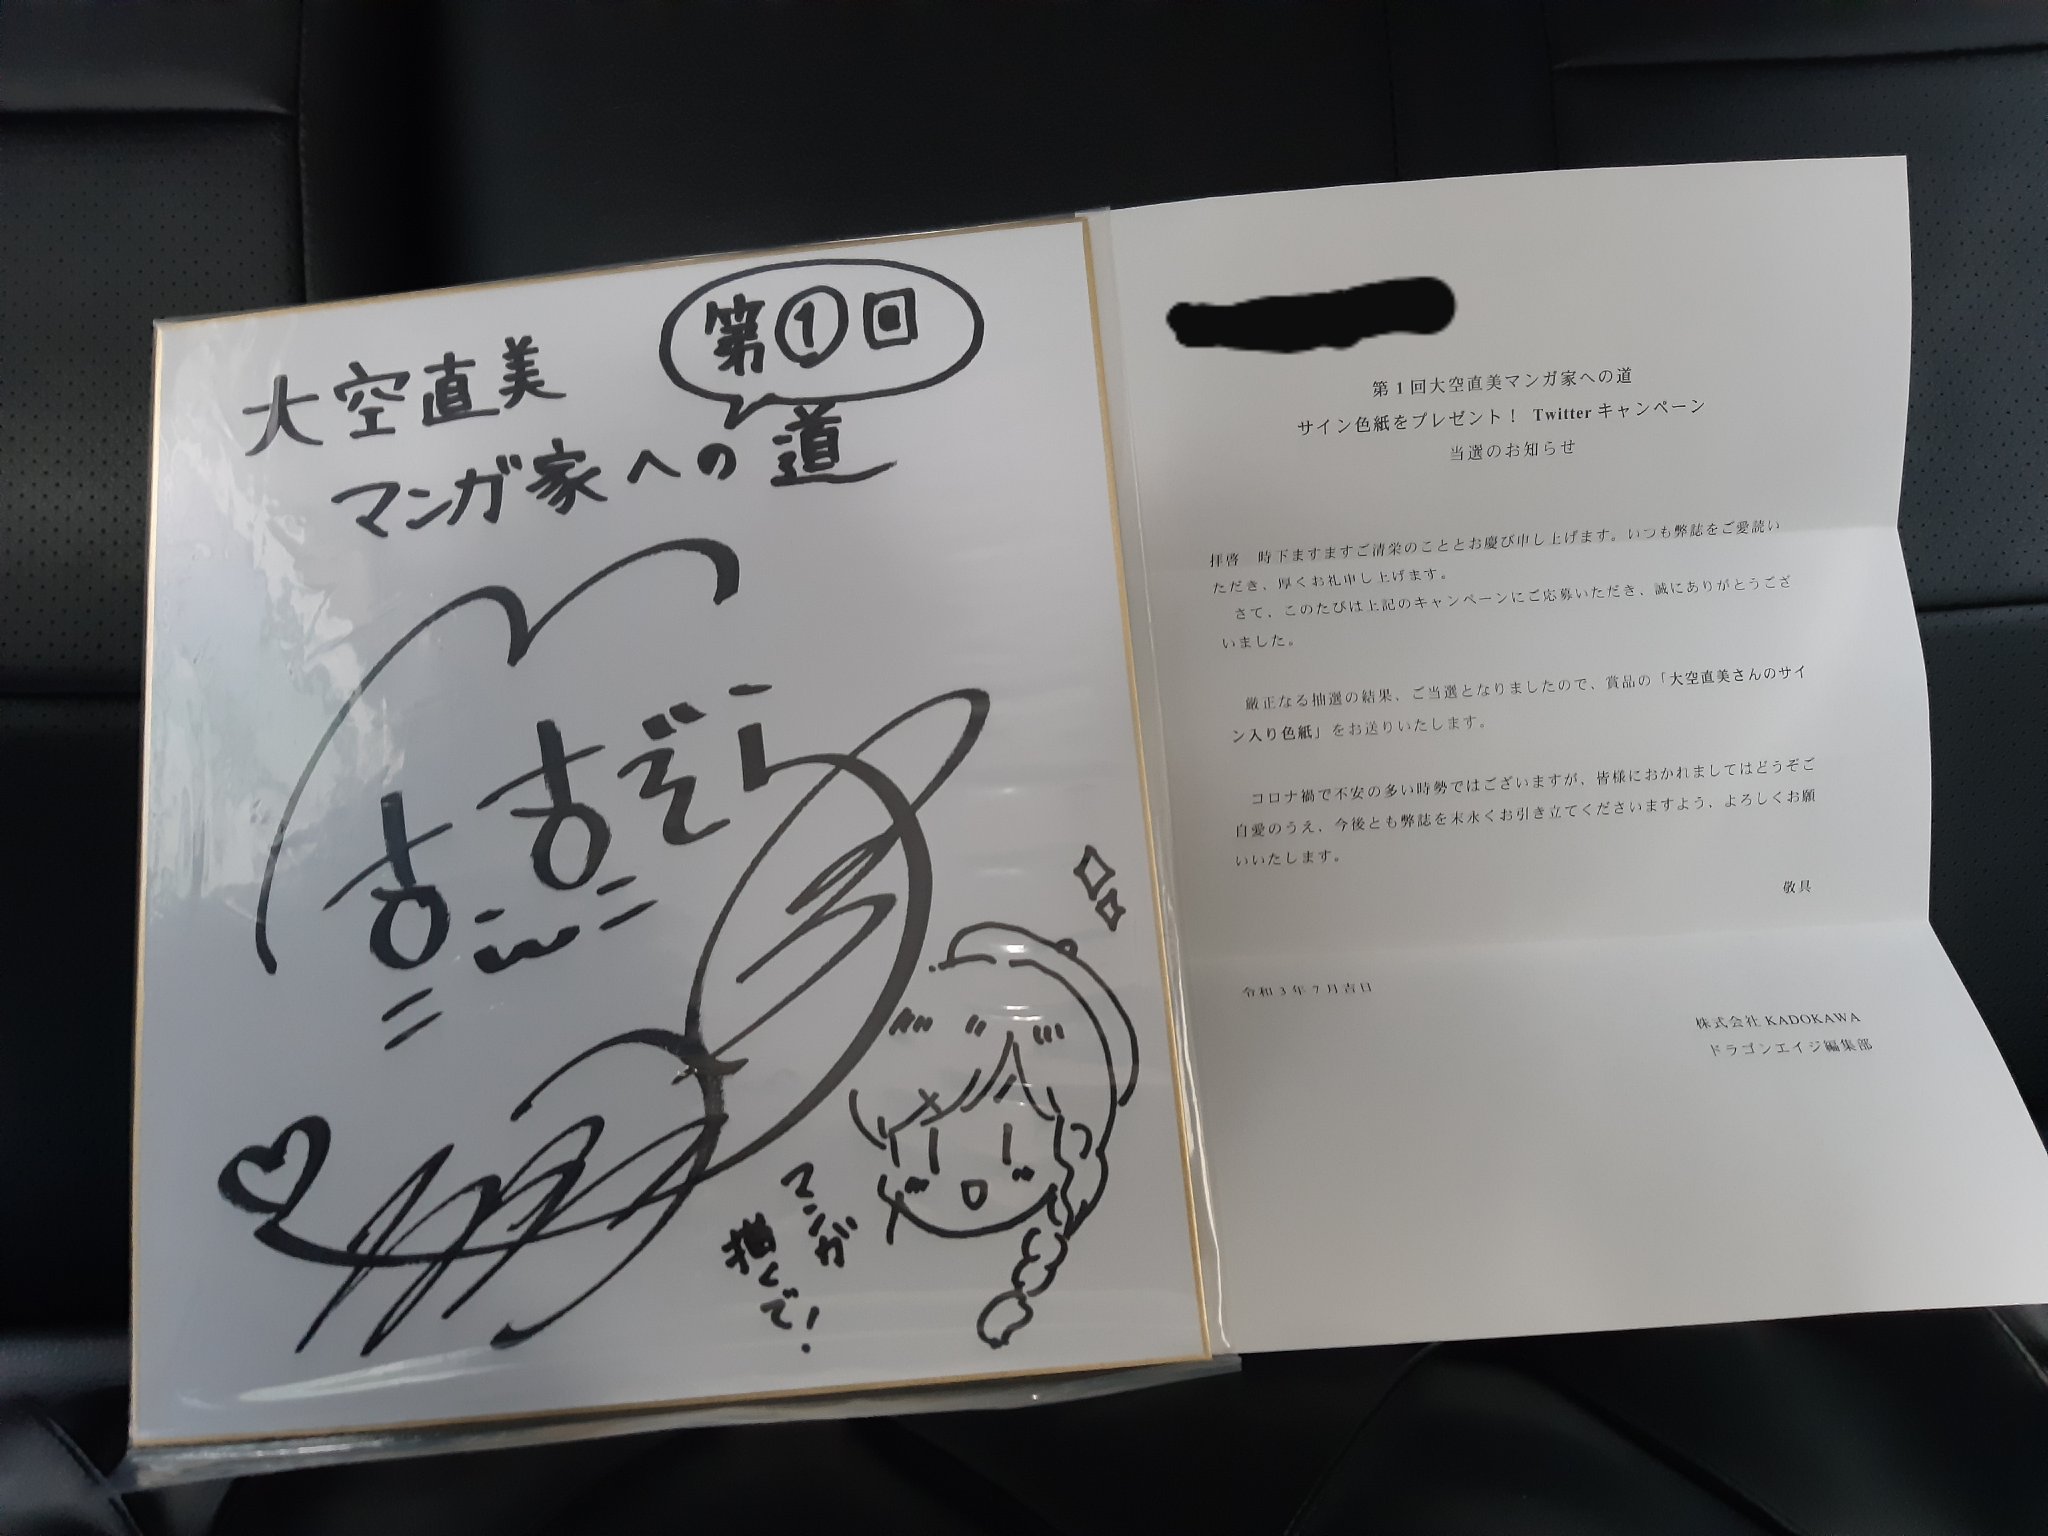 第①回
大空直美
マンガ家への道
マンガ
描くで!
第1回大空直美マンガ家への道
サイン色紙をプレゼント! Twitterキャンペーン
当選のお知らせ
拝啓 時下ますますご清栄のこととお慶び申し上げます。いつも弊誌をご愛読い
ただき、厚くお礼申し上げます。
さて、このたびは上記のキャンペーンにご応募いただき、誠にありがとうござ
いました。
厳正なる抽選の結果、ご当選となりましたので、賞品の「大空直美さんのサイ
ン入り色紙」をお送りいたします。
コロナ禍で不安の多い時勢ではございますが、皆様におかれましてはどうぞご
自愛のうえ、今後とも弊誌を末永くお引き立てくださいますよう、よろしくお願
いいたします。
敬具
令和3年7月吉日
株式会社KADOKAWA
ドラゴンエイジ編集部